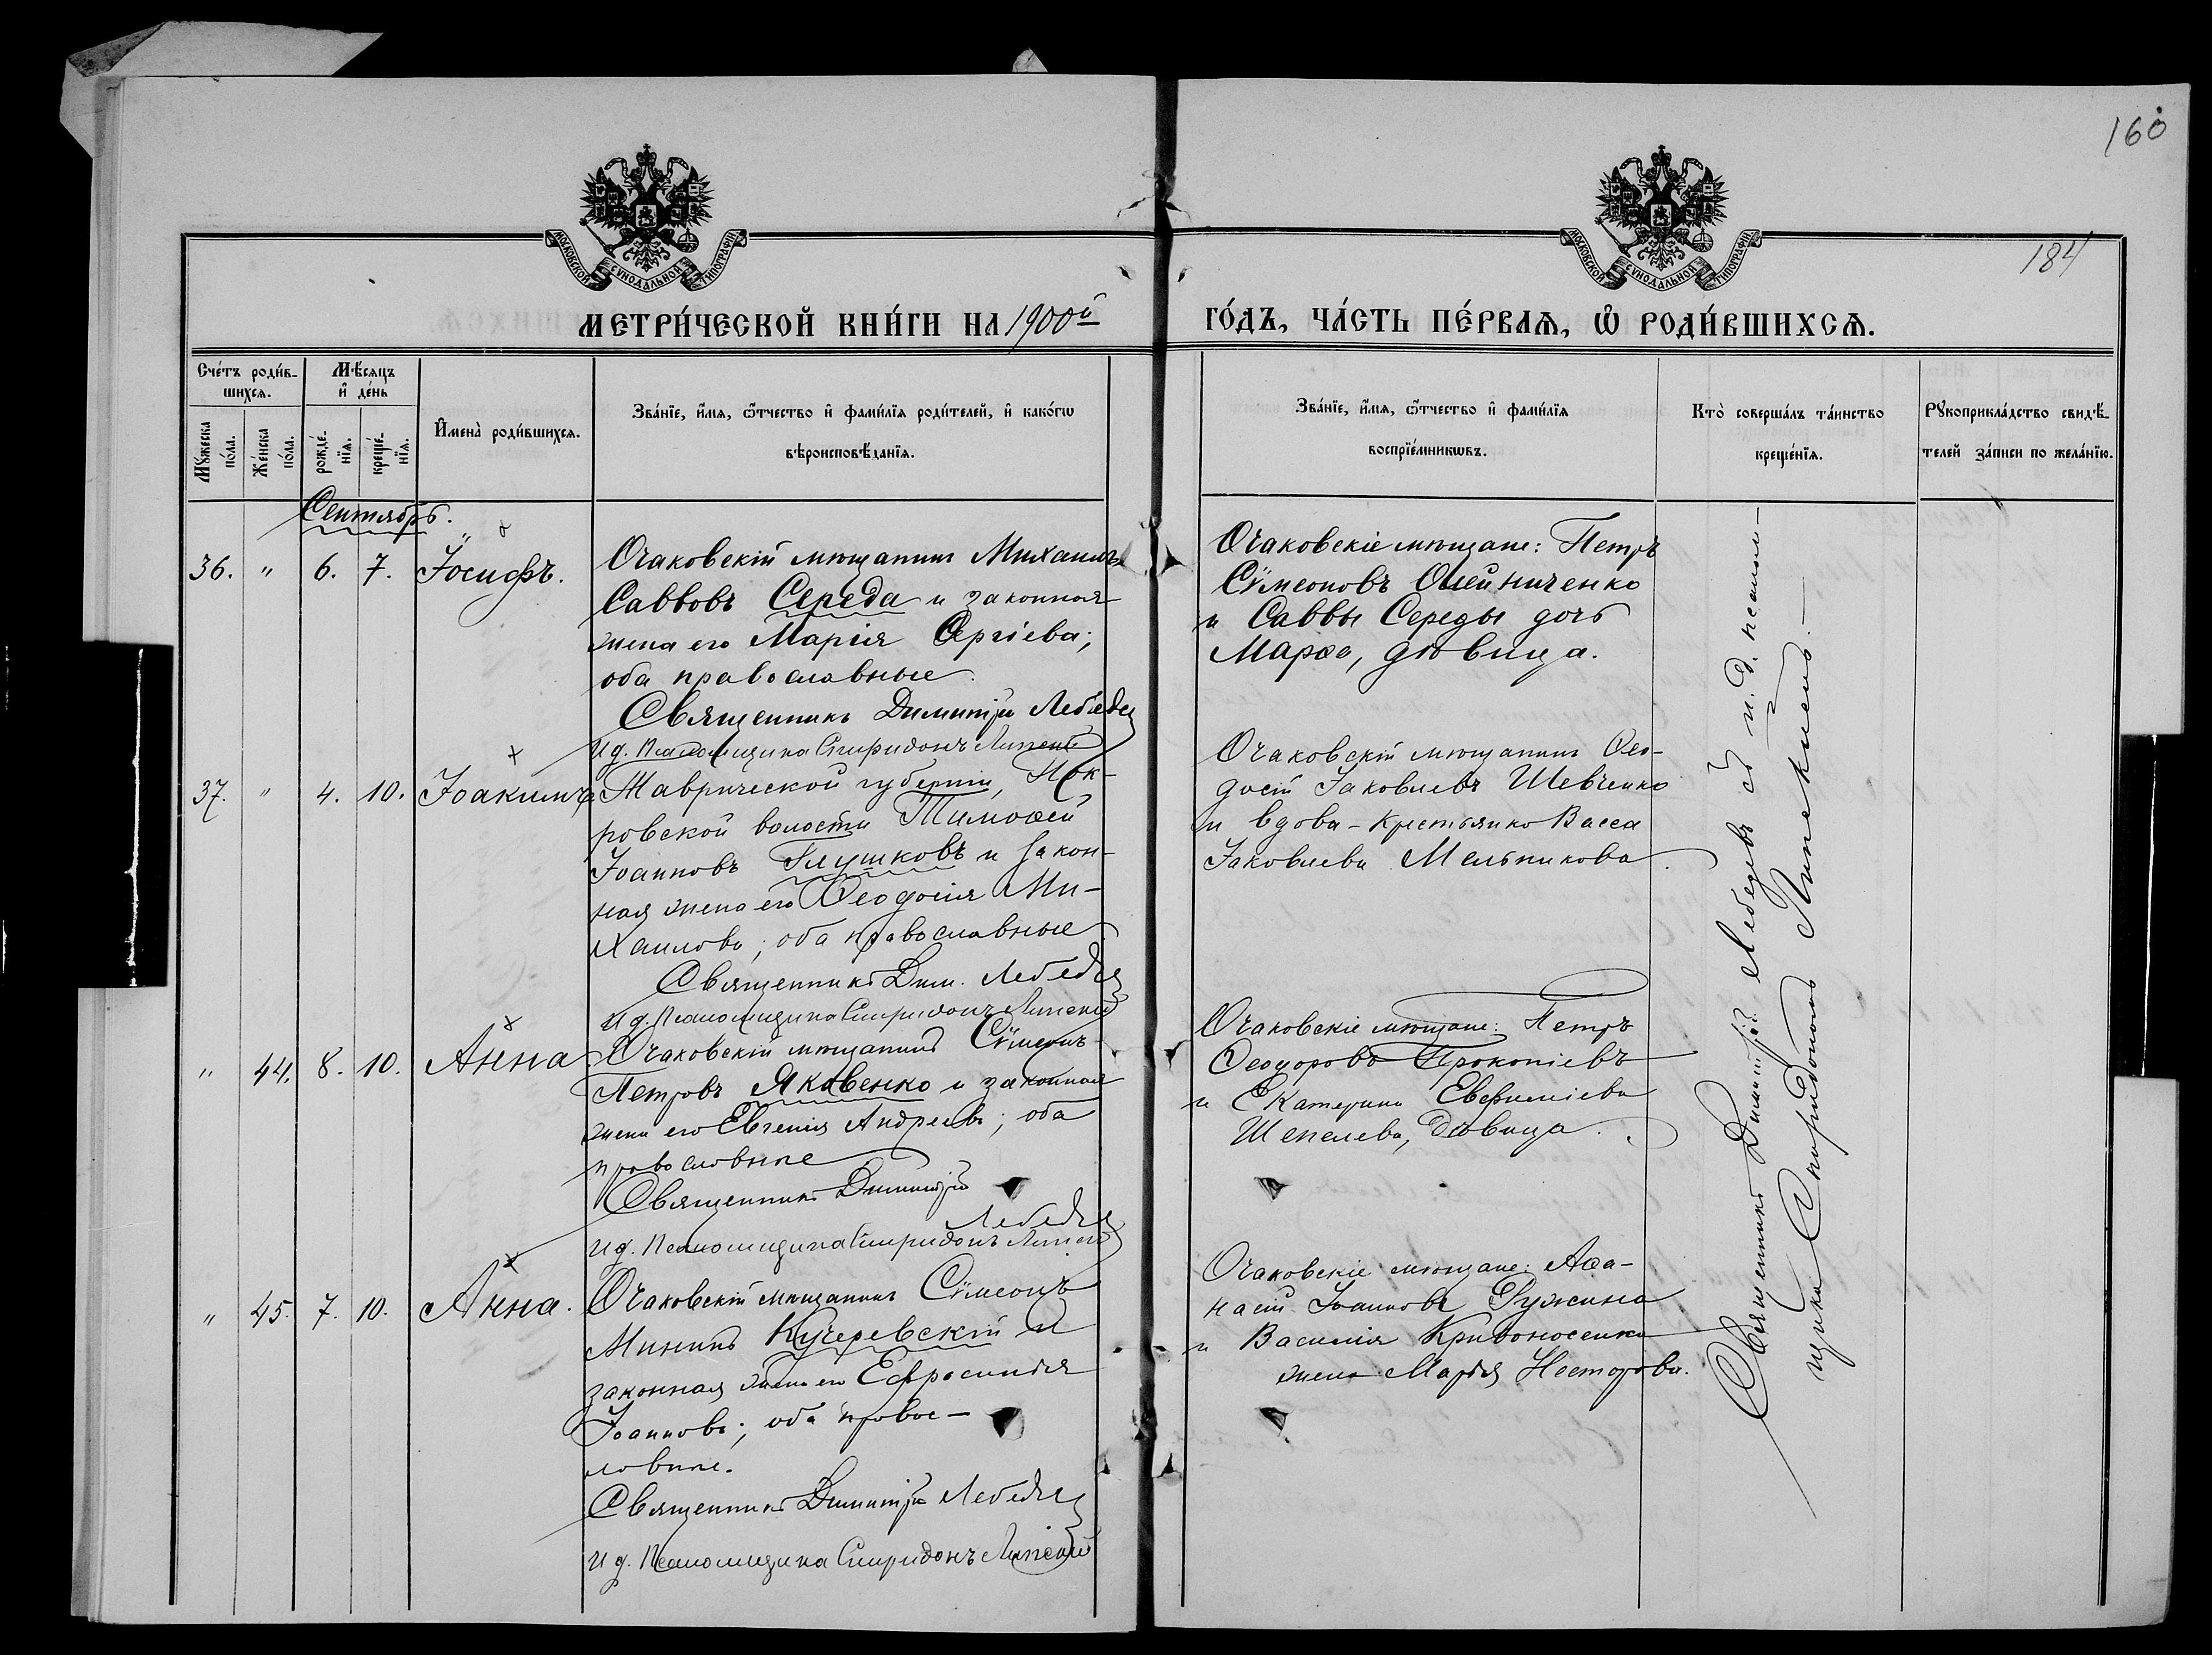 160
184
МОСКОВСКОЙ СУНОДАЛЬНОЙ ТИПОГРАФІИ
МОСКОВСКОЙ СУНОДАЛЬНОЙ ТИПОГРАФІИ
МЕТРИ́ЧЕСКОЙ КНИ́ГИ НА 1900й
ГО́ДЪ, ЧА́СТЬ ПЕ́РВАѦ, Ѡ҆ РОДИ́ВШИХСѦ.
Сче́тъ роди́в-
шихсѧ.
Мꙋ́жеска по́ла.
Же́нска по́ла.
Мѣ́сѧцъ
и҆ де́нь
рожде́-
нїѧ.
креще́-
нїѧ.
И҆мена̀ роди́вшихсѧ.
Зва́нїе, и҆́мѧ, ѻ҆́тчество и҆ фами́лїѧ роди́телей, и҆ како́гѡ
вѣроисповѣ́данїѧ.
Зва́нїе, и҆́мѧ, ѻ҆́тчество и҆ фами́лїѧ
воспрїе́мникѡвъ.
Кто̀ соверша́лъ та́инство
креще́нїѧ.
Рꙋкоприкла́дство свидѣ́-
телей за́писи по жела́нїю.
Сентябрь.
36. " 6. 7. Іосифъ.
Очаковскій мѣщанинъ Михаилъ
Саввовъ Середа и законная
жена его Марія Сергіева;
оба православные.
Священникъ Димитрій Лебедев
И д. Псаломщика Спиридонъ Липскій
Очаковскіе мѣщане: Петръ
Сѵмеоновъ Олейниченко
и Саввы Середы дочь
Марѳа, дѣвица.
37. " 4. 10. Іоакимъ
Таврической губерніи, Пок-
ровской волости Тимоѳей
Іоанновъ Глушковъ и закон-
ная жена его Ѳеодосія Ми-
хаилова; оба православные
Священникъ Дим. Лебедев
И д. Псаломщика Спиридонъ Липскій
Очаковскій мѣщанинъ Ѳео-
досій Іаковлевъ Шевченко
и вдова-крестьянка Васса
Іаковлева Мельникова.
" 44. 8. 10. Анна
Очаковскій мѣщанинъ Сѵмеонъ
Петровъ Яковенко и законная
жена его Евгенія Андреева; оба
православные
Священникъ Димитрій
Лебедев
И д. Псаломщика Спиридонъ Липскій
Очаковскіе мѣщане: Петръ
Ѳеодоровъ Прокопіевъ
и Екатерина Евфиміева
Шепелева, дѣвица.
" 45. 7. 10. Анна.
Очаковскій мѣщанинъ Сѵмеонъ
Мининъ Кучеревскій и
законная жена его Ефросинія
Іоаннова; оба правос-
лавные.
Священникъ Димитрій Лебедев
И д. Псаломщика Спиридонъ Липскій
Очаковскіе мѣщане: Аѳа-
насій Іоанновъ Ружина
и Василія Кривоносенка
жена Марія Несторова.
Священникъ Димитрій Лебедевъ съ и. д. псалом-
щика Спиридономъ Липскимъ.